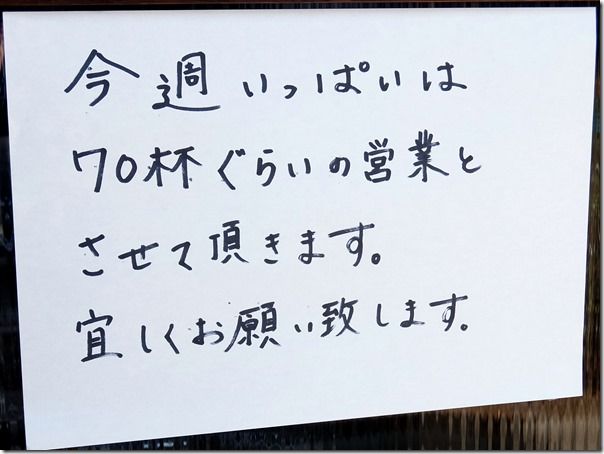 今週いっぱいは
70杯ぐらいの営業と
させて頂きます。
宜しくお願い致します。